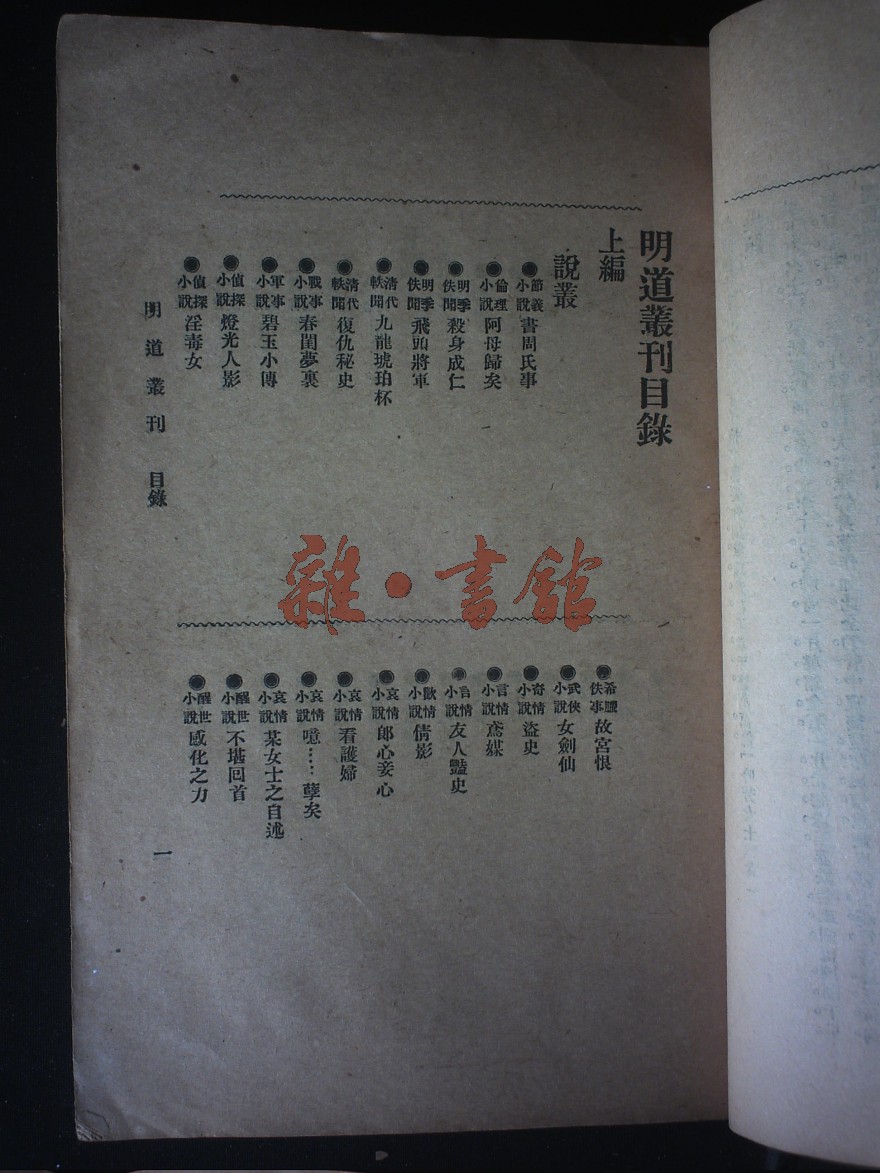 明道叢刊目錄
上編
說叢
●節義小說 書周氏事
●倫理小說 阿母歸矣
●明季佚聞 殺身成仁
●明季佚聞 飛頭將軍
●清代軼聞 九龍琥珀杯
●清代軼聞 復仇秘史
●戰事小說 春閨夢裏
●軍事小說 碧玉小傳
●偵探小說 燈光人影
●偵探小說 淫毒女
●希臘佚事 故宮恨
●武俠小說 女劍仙
●奇情小說 盜史
●言情小說 鳶媒
●言情小說 友人豔史
●歡情小說 倩影
●哀情小說 郎心妾心
●哀情小說 看護婦
●哀情小說 噫……孽矣
●哀情小說 某女士之自述
●醒世小說 不堪回首
●醒世小說 感化之力
明道叢刊 目錄
一
雜·書館